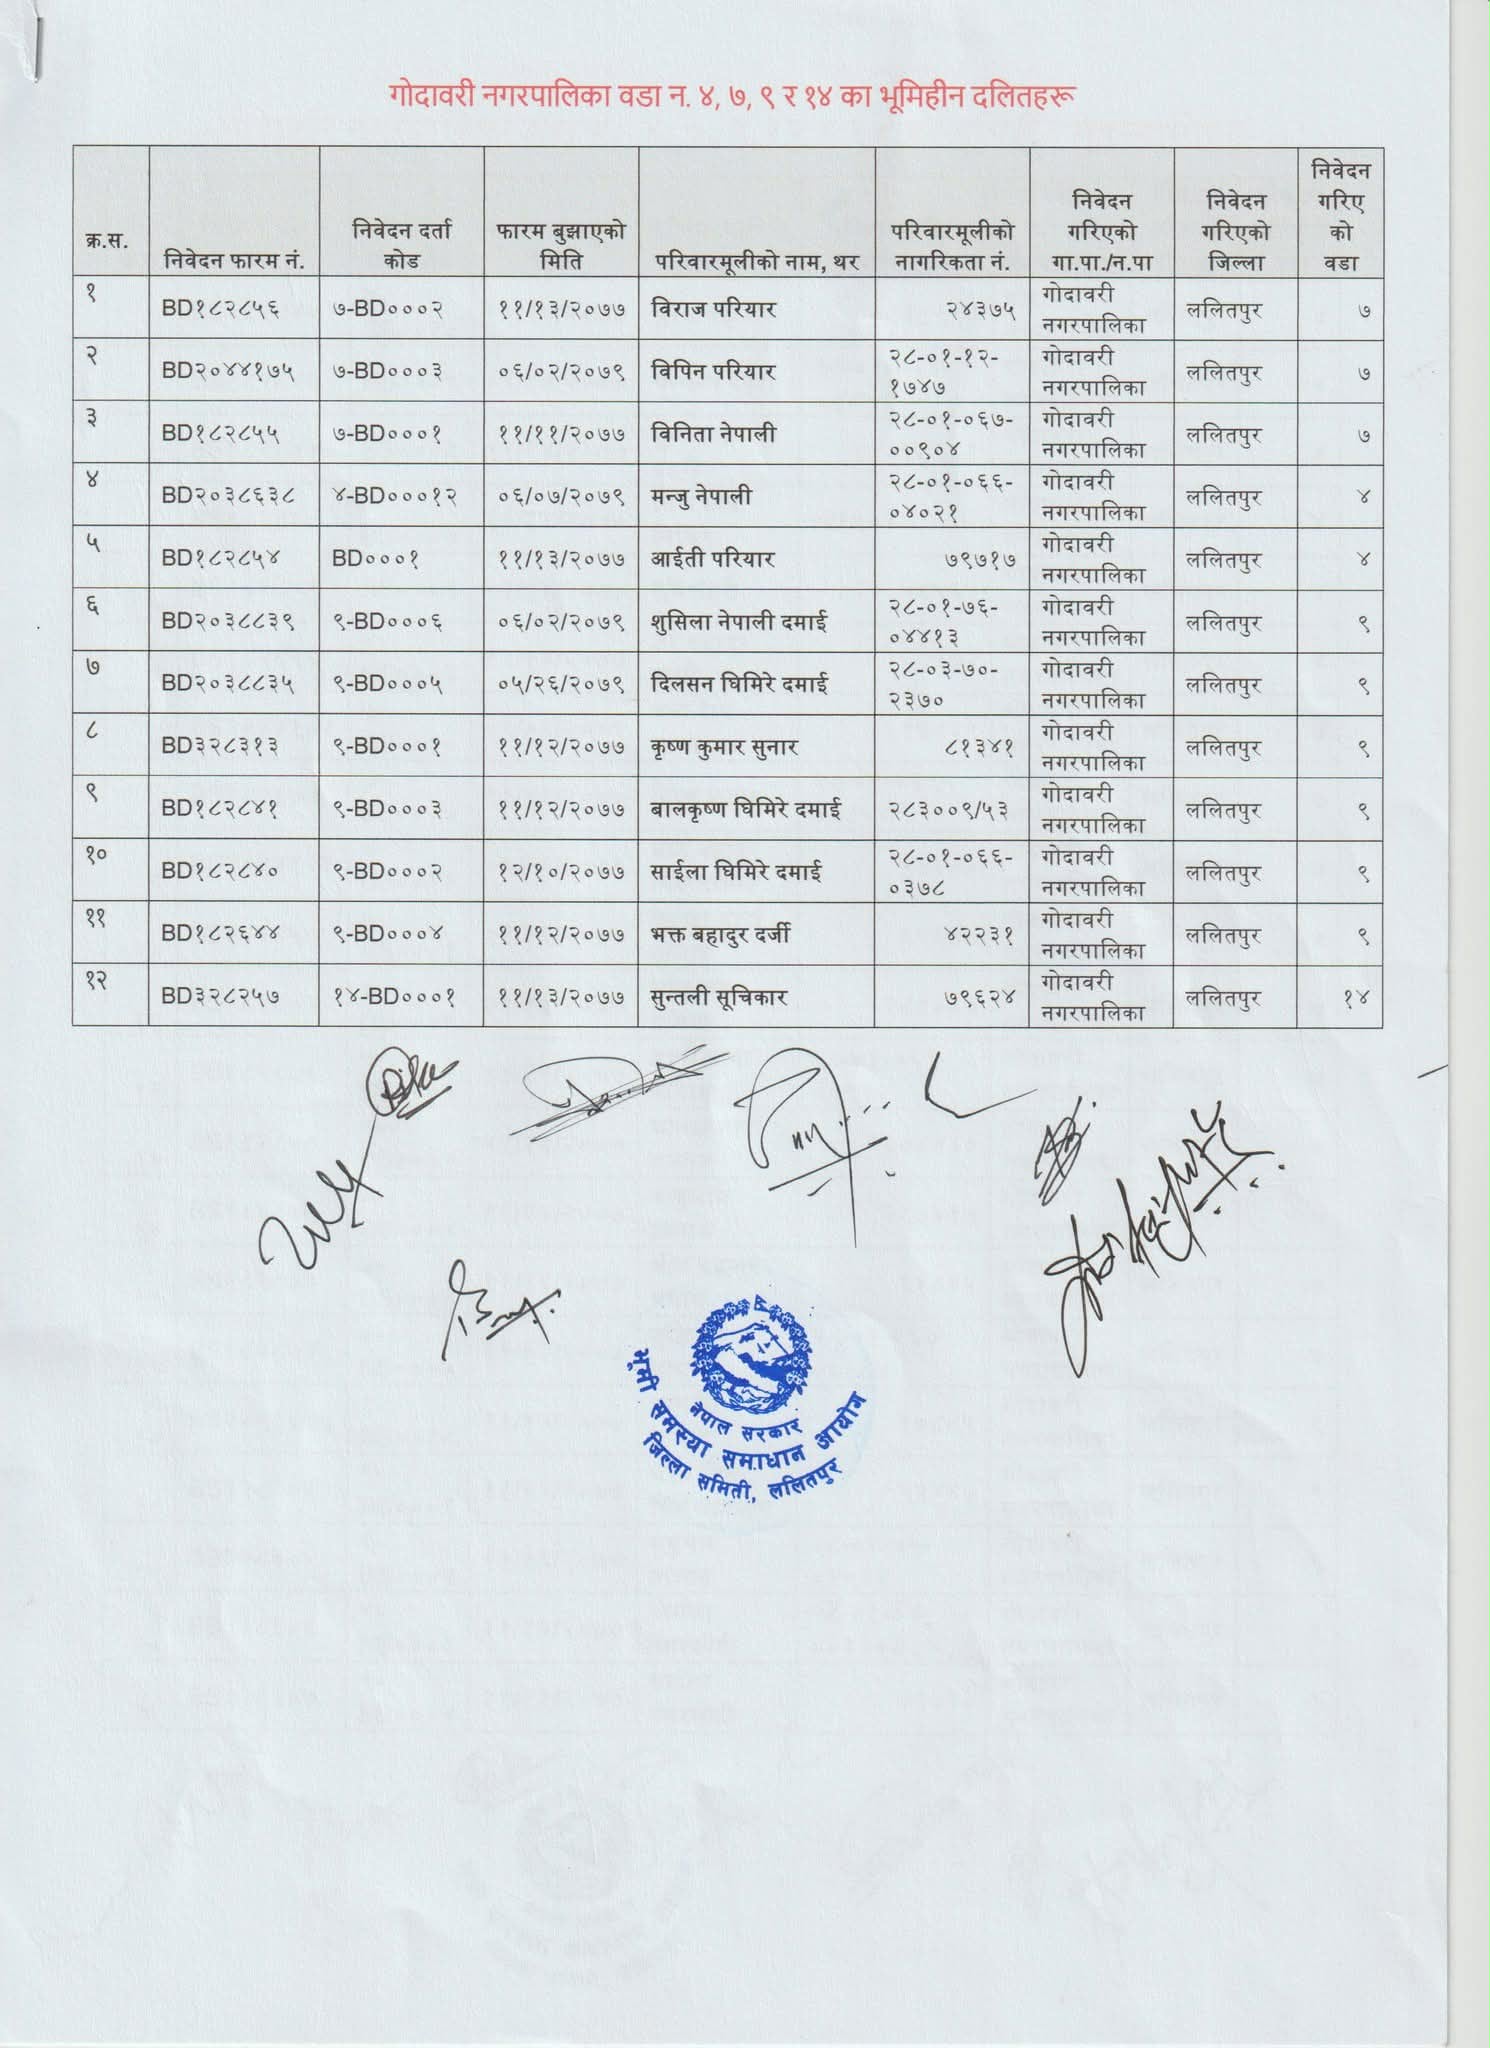 गोदावरी नगरपालिका वडा न. ४, ७, ९ र १४ का भूमिहीन दलितहरू
क्र.स. निवेदन फारम नं. निवेदन दर्ता कोड फारम बुझाएको मिति परिवारमूलीको नाम, थर परिवारमूलीको नागरिकता नं. निवेदन गरिएको गा.पा./न.पा निवेदन गरिएको जिल्ला निवेदन गरिए को वडा
१ BD१८२८५६ ७-BD०००२ ११/१३/२०७७ विराज परियार २४३७५ गोदावरी नगरपालिका ललितपुर ७
२ BD२०४४१७५ ७-BD०००३ ०६/०२/२०७९ विपिन परियार २८-०१-१२-१७४७ गोदावरी नगरपालिका ललितपुर ७
३ BD१८२८५५ ७-BD०००१ ११/११/२०७७ विनिता नेपाली २८-०१-०६७-००९०४ गोदावरी नगरपालिका ललितपुर ७
४ BD२०३८६३८ ४-BD०००१२ ०६/०७/२०७९ मन्जु नेपाली २८-०१-०६६-०४०२१ गोदावरी नगरपालिका ललितपुर ४
५ BD१८२८५४ BD०००१ ११/१३/२०७७ आईती परियार ७९७१७ गोदावरी नगरपालिका ललितपुर ४
६ BD२०३८८३९ ९-BD०००६ ०६/०२/२०७९ शुसिला नेपाली दमाई २८-०१-७६-०४४१३ गोदावरी नगरपालिका ललितपुर ९
७ BD२०३८८३५ ९-BD०००५ ०५/२६/२०७९ दिलसन घिमिरे दमाई २८-०३-७०-२३७० गोदावरी नगरपालिका ललितपुर ९
८ BD३२८३१३ ९-BD०००१ ११/१२/२०७७ कृष्ण कुमार सुनार ८१३४१ गोदावरी नगरपालिका ललितपुर ९
९ BD१८२८४१ ९-BD०००३ ११/१२/२०७७ बालकृष्ण घिमिरे दमाई २८३००९/५३ गोदावरी नगरपालिका ललितपुर ९
१० BD१८२८४० ९-BD०००२ १२/१०/२०७७ साईला घिमिरे दमाई २८-०१-०६६-०३७८ गोदावरी नगरपालिका ललितपुर ९
११ BD१८२६४४ ९-BD०००४ ११/१२/२०७७ भक्त बहादुर दर्जी ४२२३१ गोदावरी नगरपालिका ललितपुर ९
१२ BD३२८२५७ १४-BD०००१ ११/१३/२०७७ सुन्तली सूचिकार ७९६२४ गोदावरी नगरपालिका ललितपुर १४
नेपाल सरकार
भूमी समस्या समाधान आयोग
जिल्ला समिती, ललितपुर